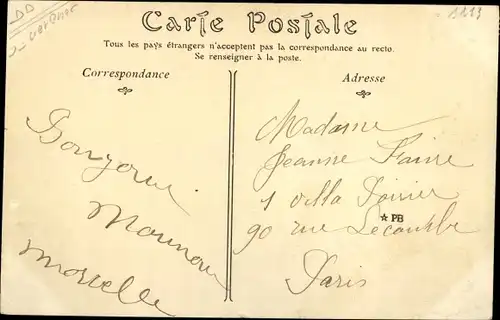 Carte Postale
1213
DD
Tous les pays étrangers n'acceptent pas la correspondance au recto.
Se renseigner à la poste.
Correspondance
Adresse
Bonjour
Marcelle
Madame
Jeanne Faivre
1 villa Poirier
90 rue Lecourbe
Paris
☆ PB